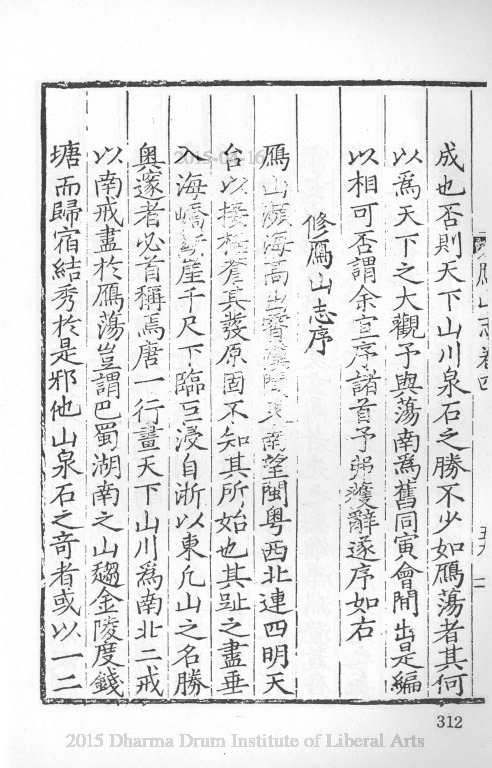 成也否則天下山川泉石之勝不少如鴈蕩者其何
以爲天下之大觀予與蕩南爲舊同寅會間出是編
以相可否謂余宜序諸首予弗獲辭遂序如右
修鴈山志序
鴈山瀕海高出 東南望閩粤西北連四明天
台以接 其發原固不知其所始也其趾之盡垂
入海嶠 崖千尺下臨巨浸自浙以東凡山之名勝
奥邃者必首稱焉唐一行畫天下山川爲南北二戒
以南戒盡於鴈蕩豈謂巴蜀湖南之山趨金陵度錢
塘而歸宿結秀於是邪他山泉石之奇者或以一二
鴈山志卷四
312
2015 Dharma Drum Institute of Liberal Arts